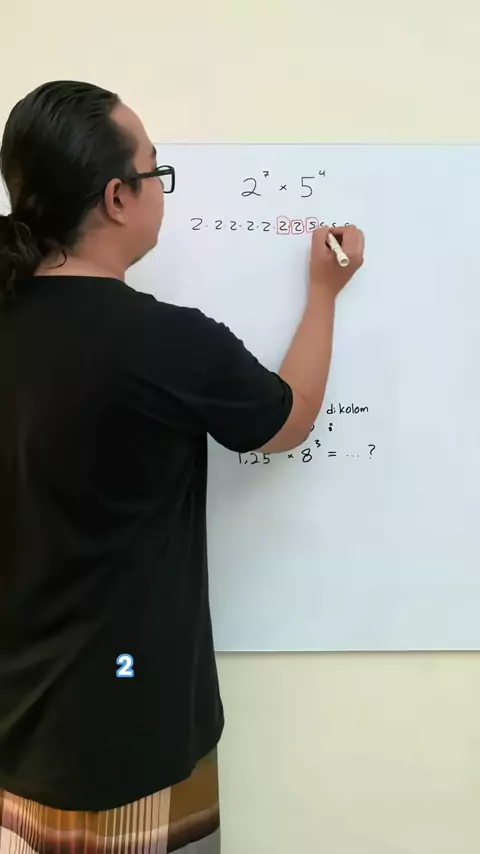 2⁷ × 5⁴
2·2·2·2·2·2·2 5
dikolom
:
1,25 × 8³ = ... ?
2